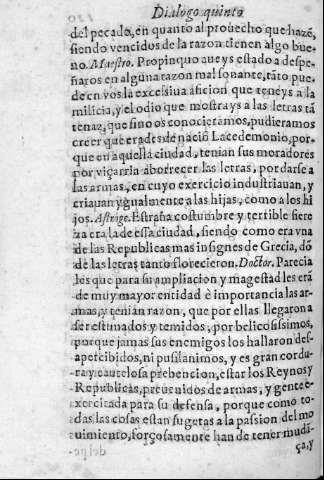 Dialogo quinto
del pecado, en quanto al prouecho que hazé,
siendo vencidos de la razon tienen algo bue-
no. Maestro. Propinquo aueys estado a despe-
ñaros en alguna razon mal sonante, táto pue-
de en vos la excelsiua aficion que teneys a la
milicia, y el odio que mostrays a las letras tá
tenaz, que sino os conocieramos, pudieramos
creer que erades de nació Lacedemonio, por-
que en aquella ciudad, tenian sus moradores
por viçarria aborrecer las letras, por darse a
las armas, en cuyo exercicio industriauan, y
criauan ygualmente a las hijas, como a los hi
jos. Astrige. Estraña costumbre y terrible fiere
za era la de essa ciudad, siendo como era vna
de las Republicas mas insignes de Grecia, dó
de las letras tanto florecieron. Doctor. Parecia
les que para su ampliacion y magestad les erá
de muy mayor entidad è importancia las ar-
mas, y tenian razon, que por ellas llegaron a
ser estimados y temidos, por belicosissimos,
porque jamas sus enemigos los hallaron des-
apercibidos, ni pusilanimos, y es gran cordu-
ra y cautelosa prebencion, estar los Reynos y
Republicas, preuenidos de armas, y gente e-
xercitada para su defensa, porque como to-
das las cosas estan sugetas a la passion del mo
uimiento, forçosamente han de tener mudá-
ça, y